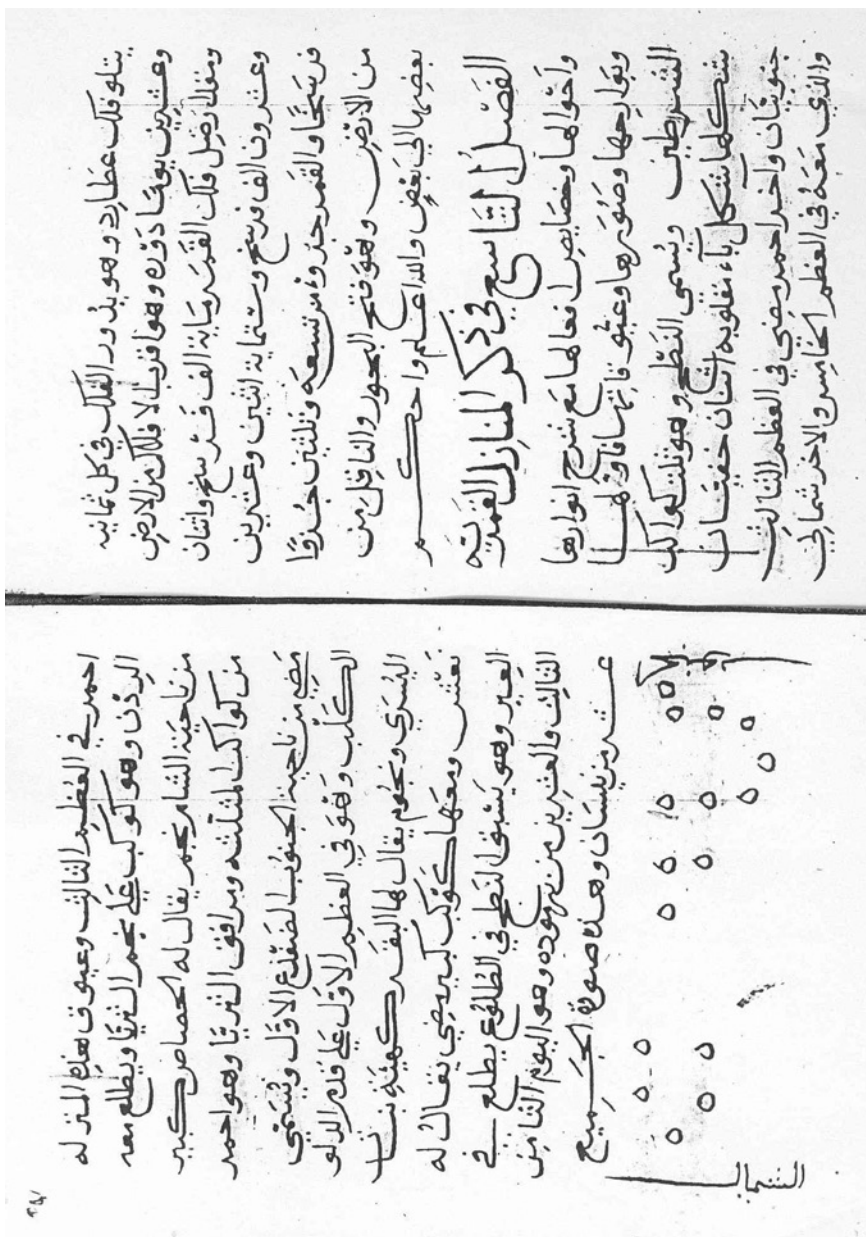 يتلو فلك عطارد وهو يدور الفلك في كل ثمانيه
وعشرين يومًا دوره وهو اقرب الافلاك من الارض
يصل فلك القمر مائة الف فرسخ واثنان
وعشرون الف فرسخ وستماية اثنين وعشرين
فرسخًا والقمر جزوء من تسعه وثلثين جزوًا
من الارض وهو فتح البحور والناقل من
بعضها الي بعض والله اعلم واحكم
الفصل التاسع في ذكر المنازل القمريه
واحوالها وخصايص افعالها مع شرح انوارها
وبوارحها وصورها وعيوقاتها فاولها
الشرطين ويسمي النطح وهو ثلث كواكب
شكلها شكل باء مقلوبه اثنان خفيفان
جنوبيان واخر احمر مضي في العظم الثالث
والذي معه في العظم الخامس والاخر شمالي
احمر في العظم الثالث وعيوق هذه المنزله
الردف وهو كوكب علي نجم الثريا ويطلع معه
من ناحية الشام نجم يقال له الحصاص كبير
من كواكب المثلثه ومرافق الثريا وهو احمر
مضي من ناحية الجنوب الضفدع الاول ويسمي
الكلب وهو في العظم الاول علي فم الدلو
اليسري ونجوم يقال لها البقر كهيئه بنات
نعش ومعها كوكب كبير مضي يقال له
العير وهو يسبق النطح في الطلوع يطلع في
الثالث والعشرين من برموده وهو اليوم الثامن
عشر من نيسان وهذه صورة الجميع
الشمال